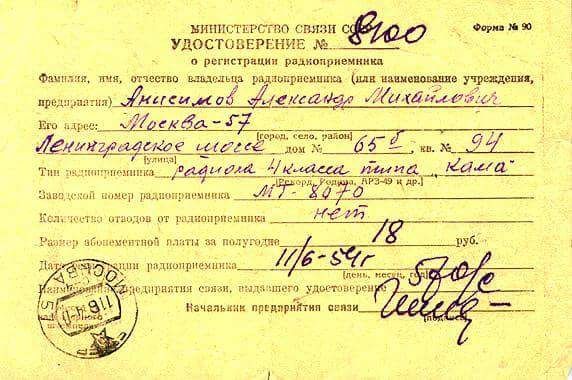 МИНИСТЕРСТВО СВЯЗИ СССР
Форма № 90
УДОСТОВЕРЕНИЕ № 8100
о регистрации радиоприемника
Фамилия, имя, отчество владельца радиоприемника (или наименование учреждения,
предприятия) Анисимов Александр Михайлович
Его адрес: Москва-57
[город, село, район]
Ленинградское шоссе дом № 65б, кв. № 94
[улица]
Тип радиоприемника радиола 4 класса типа "Кама"
[Рекорд, Родина, АРЗ-49 и др.]
Заводской номер радиоприемника МТ-8970
Количество отводов от радиоприемника нет
Размер абонементной платы за полугодие 18 руб.
Дата регистрации радиоприемника 11/6-54г
[день, месяц, год]
Наименование предприятия связи, выдавшего удостоверение 57 о/с
Начальник предприятия связи
[подпись]
МОСКВА 57